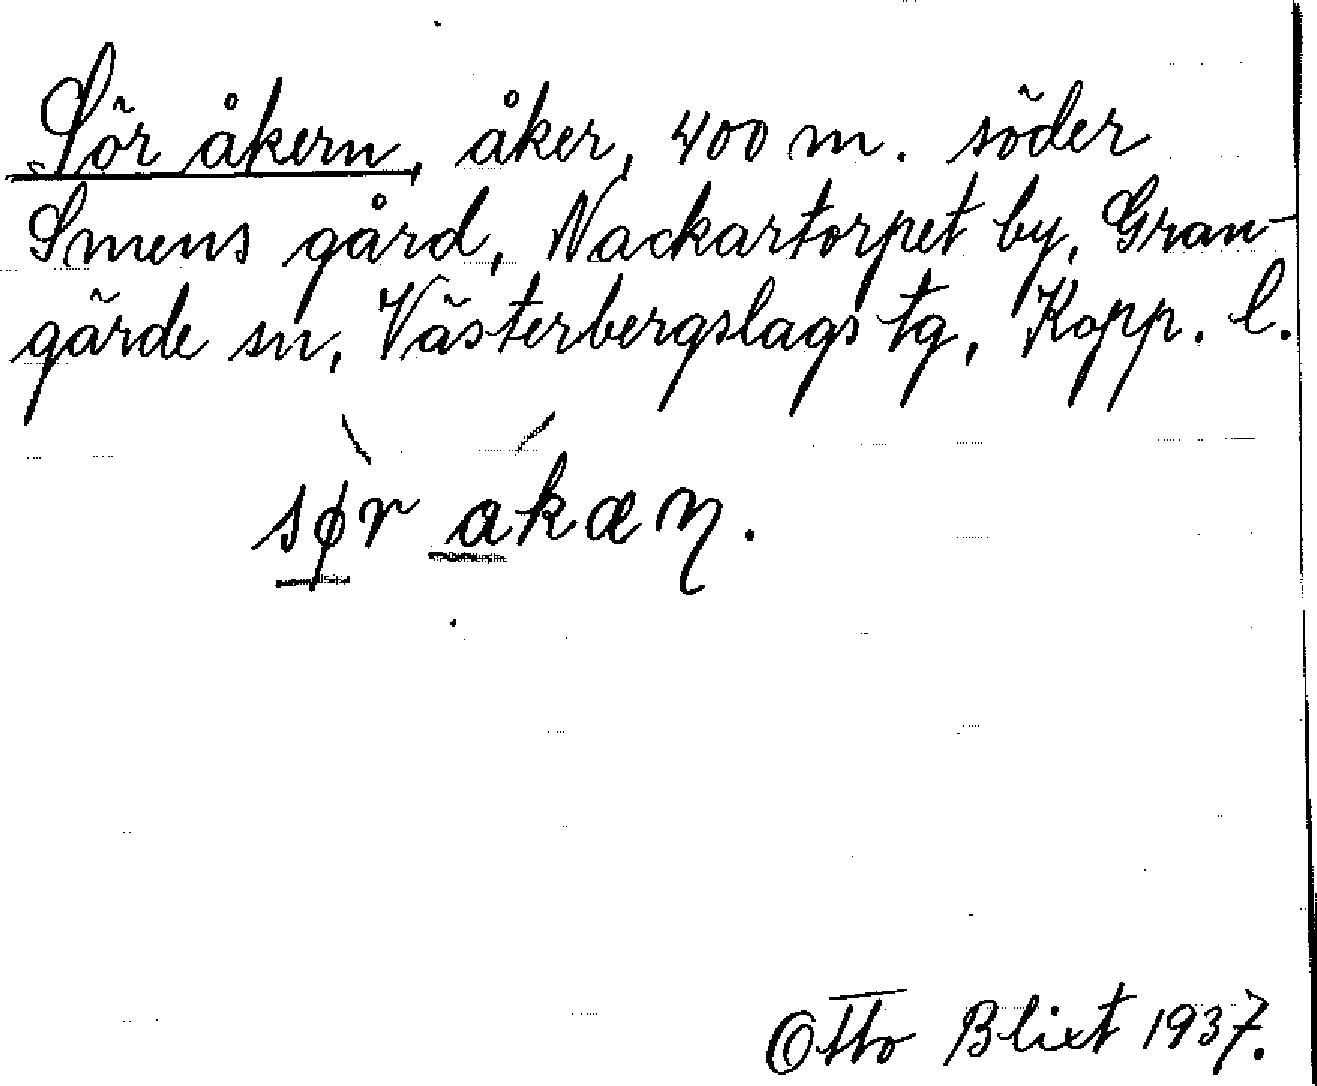 Sör åkern, åker, 400 m. söder
Smens gård, Nackartorpet by, Gran-
gärde sn, Västerbergslags tg, Kopp. l.
sør akæŋ.
Otto Blixt 1937.